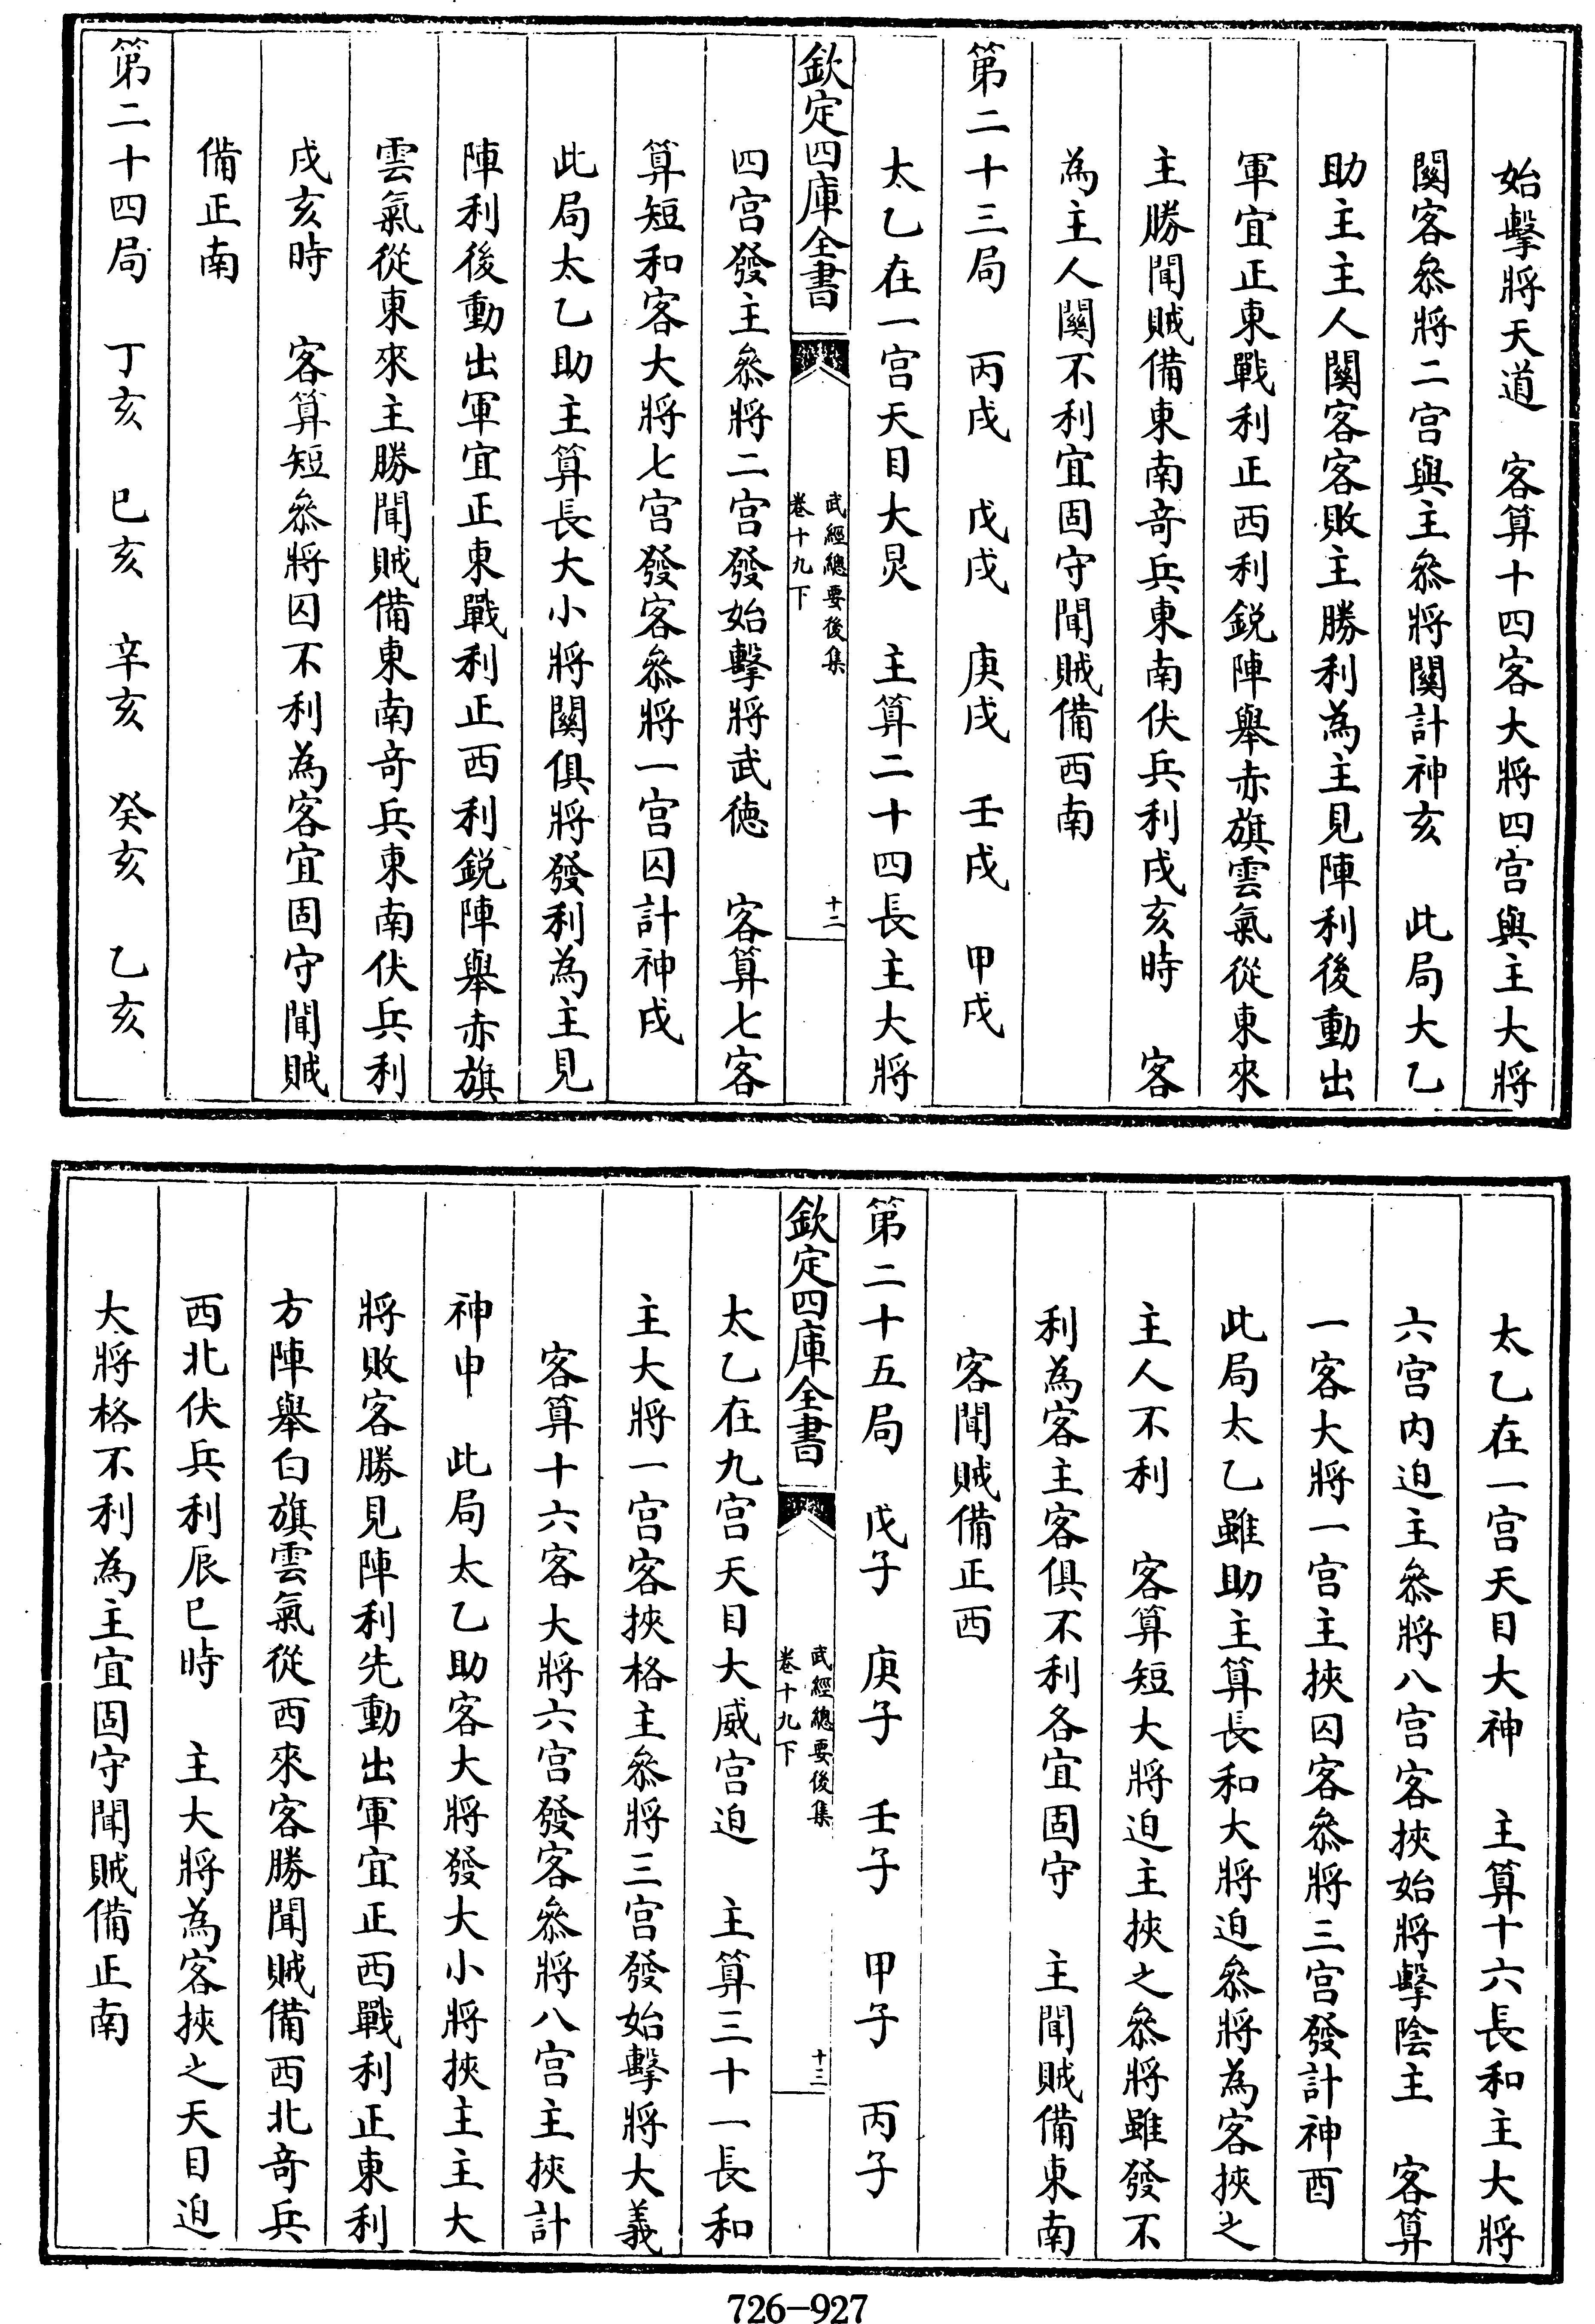 始擊將天道　客算十四客大將四宮與主大將
關客叅將二宮與主叅將關計神亥　此局大乙
助主主人關客客敗主勝利為主見陣利後動出
軍宜正東戰利正西利鋭陣舉赤旗雲氣從東來
主勝聞賊備東南竒兵東南伏兵利戌亥時　客
為主人關不利宜固守聞賊備西南
第二十三局　丙戌　戊戌　庚戌　壬戌　甲戌
太乙在一宮天目大炅　主算二十四長主大將
欽定四庫全書
武經總要後集
卷十九下
十二
四宮發主叅將二宮發始擊將武德　客算七客
算短和客大將七宮發客叅將一宮囚計神戌
此局太乙助主算長大小將關俱將發利為主見
陣利後動出軍宜正東戰利正西利鋭陣舉赤旗
雲氣從東來主勝聞賊備東南竒兵東南伏兵利
戌亥時　客算短叅將囚不利為客宜固守聞賊
備正南
第二十四局　丁亥　巳亥　辛亥　癸亥　乙亥
太乙在一宮天目大神　主算十六長和主大將
六宮内迫主叅將八宮客挾始將擊陰主　客算
一客大將一宮主挾囚客叅將三宮發計神酉
此局太乙雖助主算長和大將迫叅將為客挾之
主人不利　客算短大將迫主挾之叅將雖發不
利為客主客俱不利各宜固守　主聞賊備東南
客聞賊備正西
第二十五局　戊子　庚子　壬子　甲子　丙子
欽定四庫全書
武經總要後集
卷十九下
十三
太乙在九宮天目大威宮迫　主算三十一長和
主大將一宮客挾格主叅將三宮發始擊將大義
客算十六客大將六宮發客叅將八宮主挾計
神申　此局太乙助客大將發大小將挾主主大
將敗客勝見陣利先動出軍宜正西戰利正東利
方陣舉白旗雲氣從西來客勝聞賊備西北竒兵
西北伏兵利辰巳時　主大將為客挾之天目迫
大將格不利為主宜固守聞賊備正南
726-927